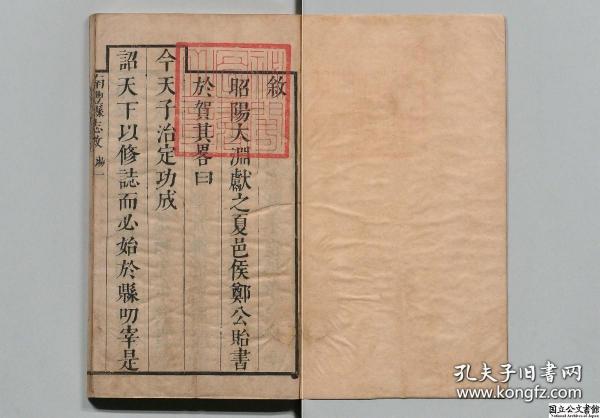 敘
昭陽大淵獻之夏邑侯鄭公貽書
於賀其畧曰
今天子治定功成
詔天下以修誌而必始於縣叨宰是
南豐縣志
孔夫子旧书网
www.kongfz.com
国立公文書館
National Archives of Japan